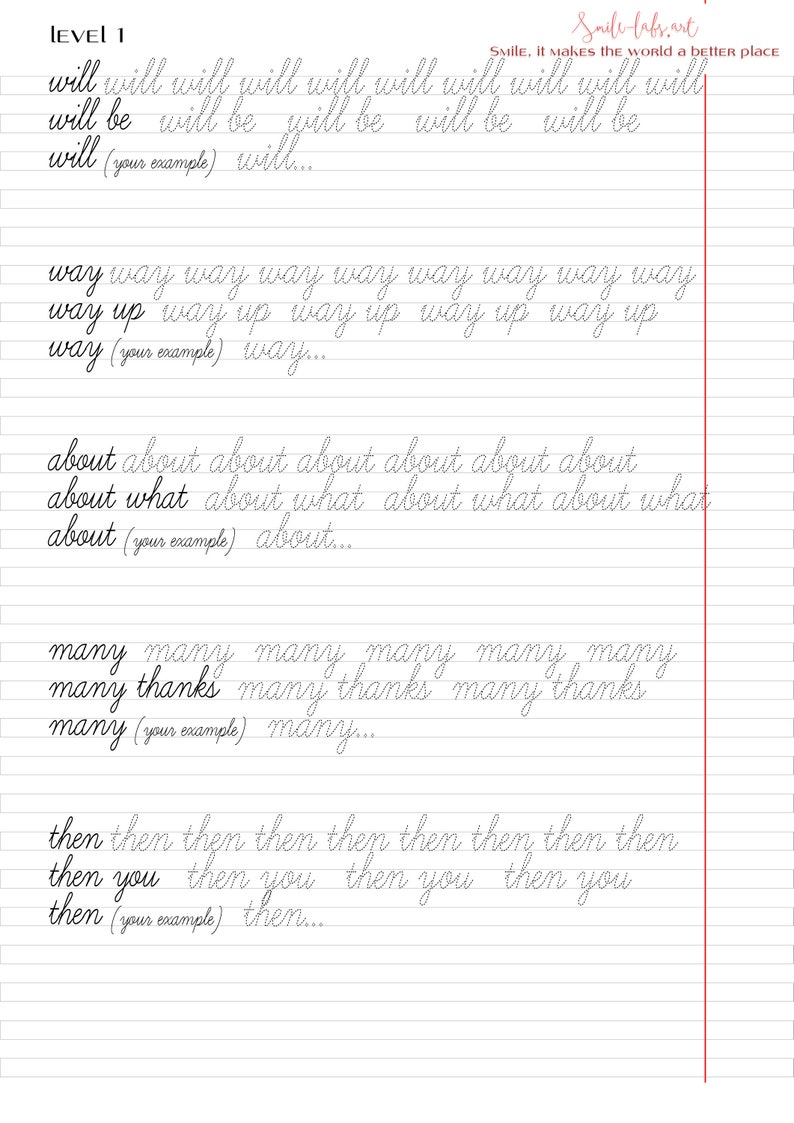 level 1
Smile-labs.art
Smile, it makes the world a better place
will will will will will will will will will will
will be will be will be will be will be
will (your example) will...
way way way way way way way way way
way up way up way up way up way up
way (your example) way...
about about about about about about about
about what about what about what about what
about (your example) about...
many many many many many many
many thanks many thanks many thanks
many (your example) many...
then then then then then then then then then
then you then you then you then you
then (your example) then...